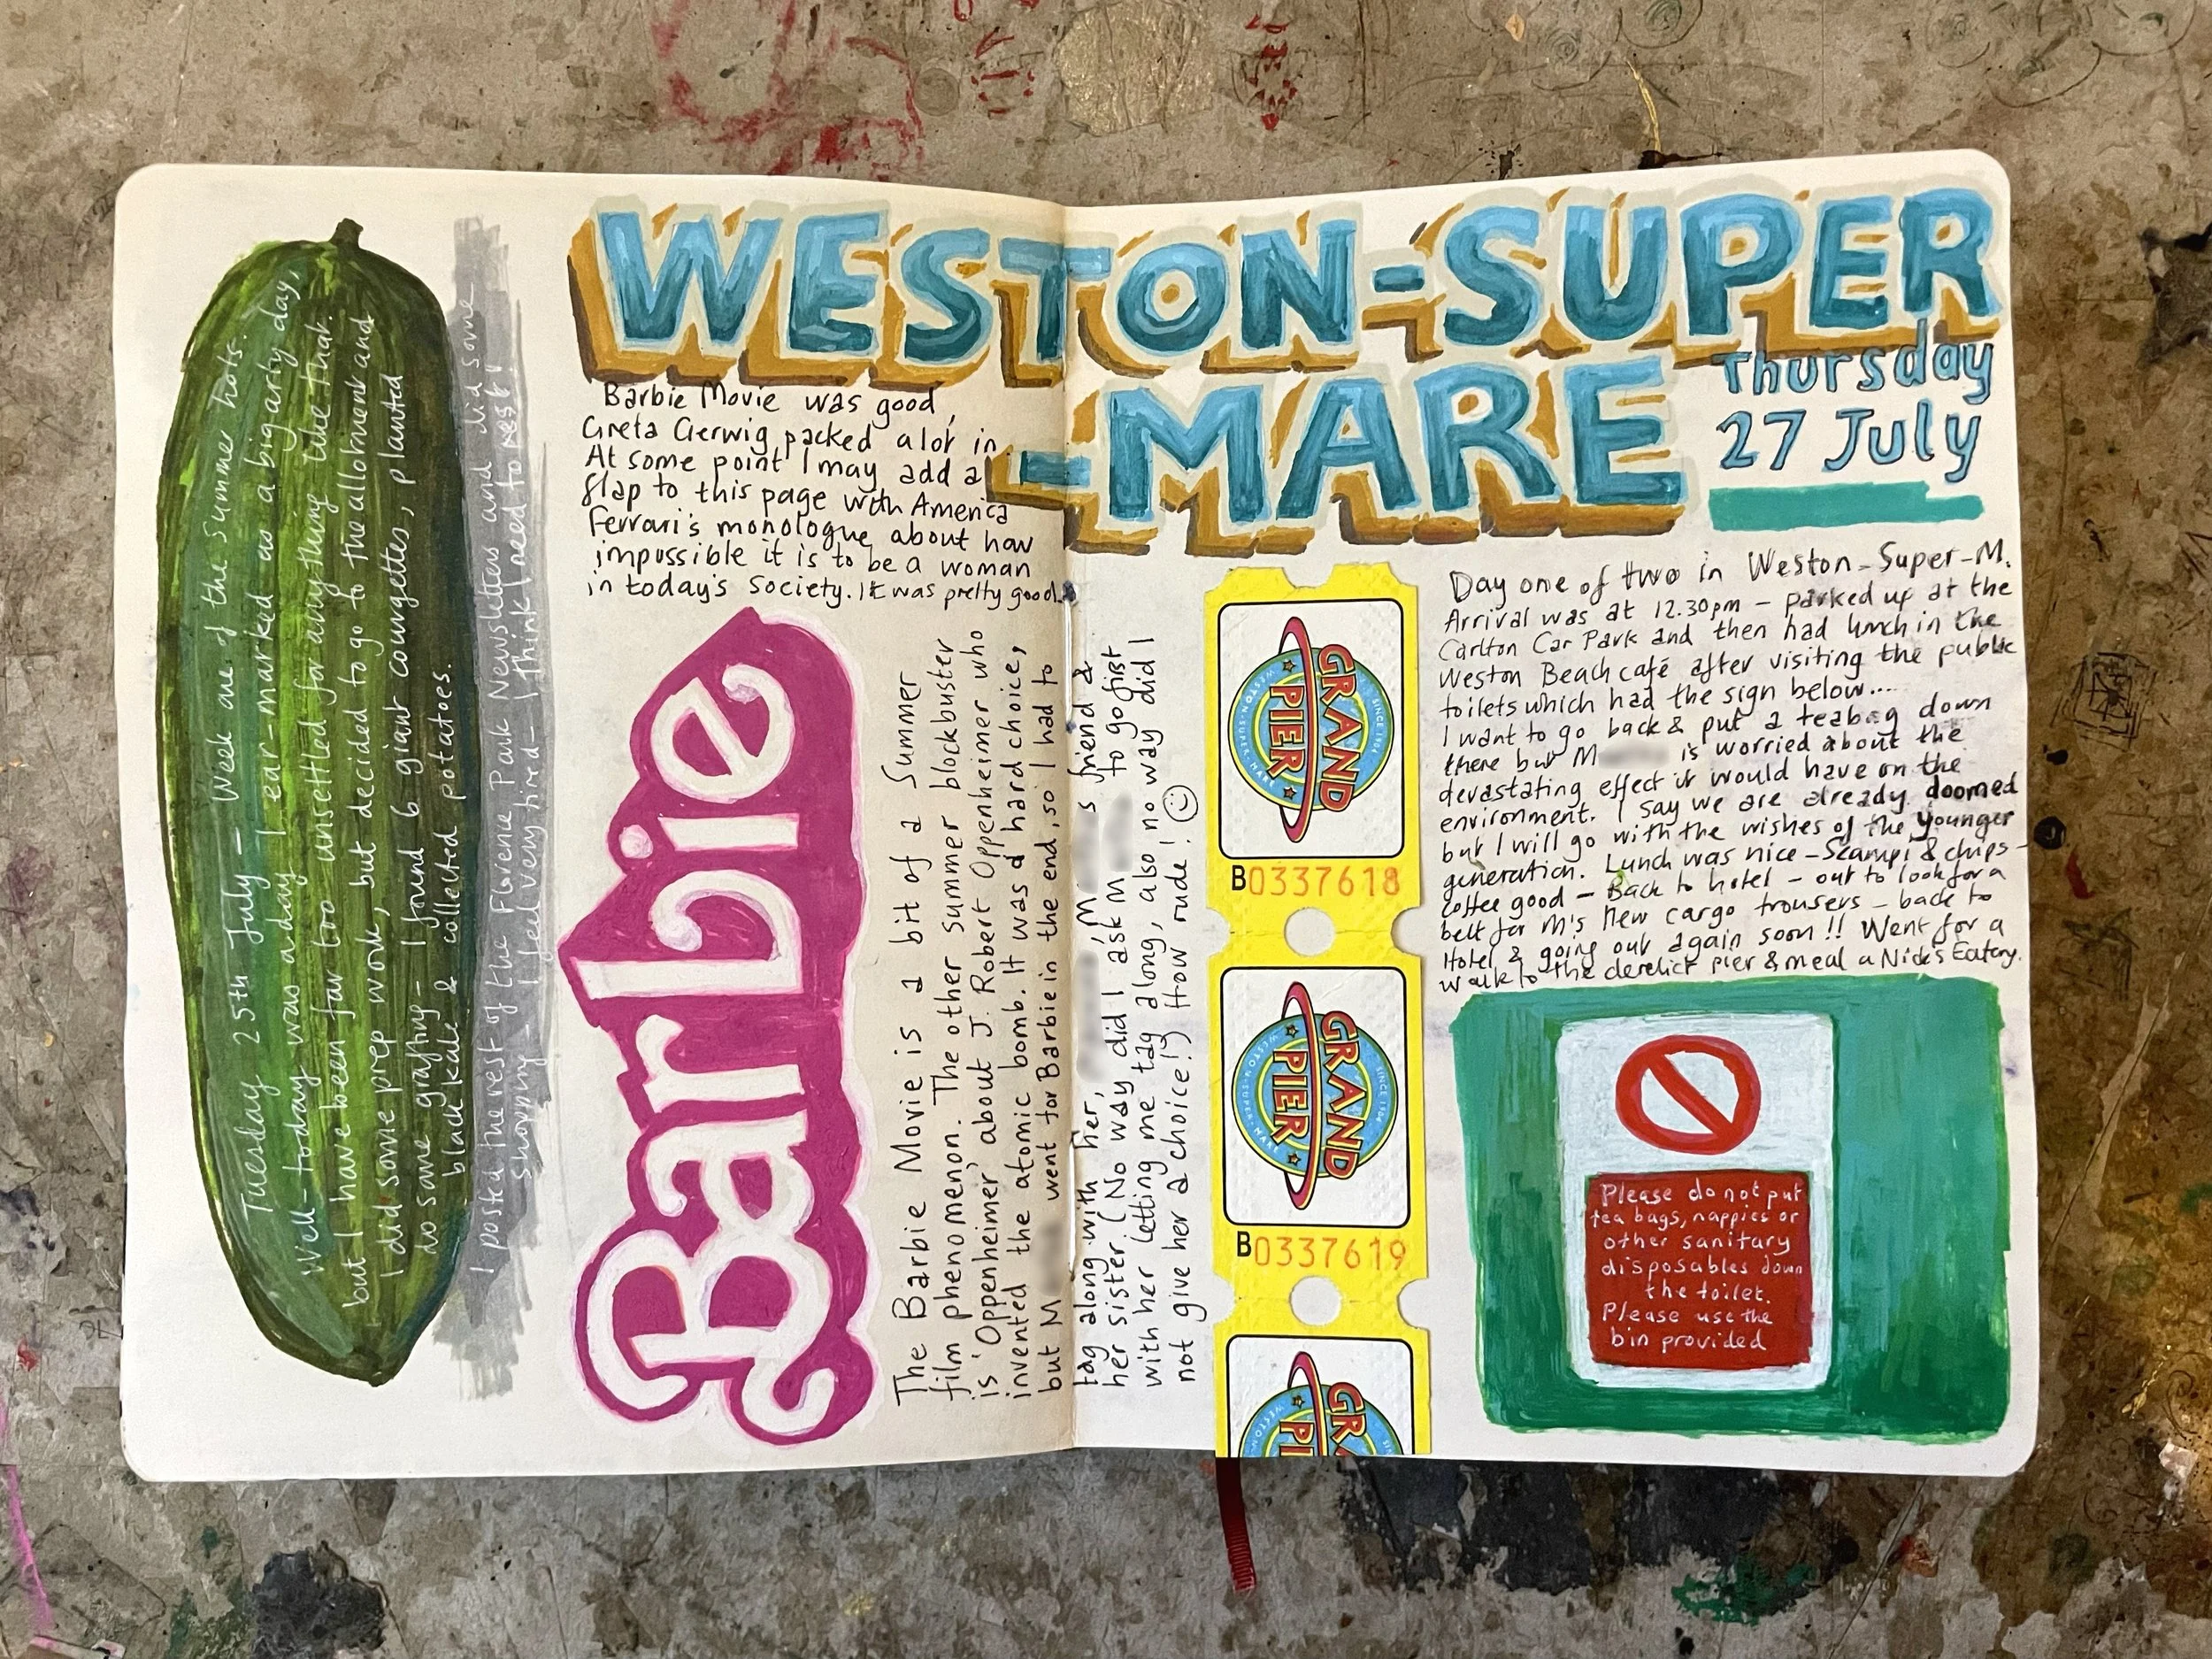 Tuesday 25th July - Week one of the summer hols.
Well - today was a day I ear-marked as a big arty day,
but I have been far too unsettled for anything like that.
I did some prep work, but decided to go to the allotment and
do some grafting - I found 6 giant courgettes, planted
black kale & collected potatoes.
I posted the rest of the Florence Park Newsletters and did some
shopping - I feel very tired - I think I need to rest!
WESTON-SUPER
-MARE
Thursday
27 July
Barbie Movie was good,
Greta Gerwig packed a lot in
At some point I may add a
flap to this page with America
Ferrari's monologue about how
impossible it is to be a woman
in today's society. It was pretty good.
Barbie
The Barbie Movie is a bit of a Summer
film phenomenon. The other summer blockbuster
is 'Oppenheimer' about J. Robert Oppenheimer who
invented the atomic bomb. It was a hard choice,
but M went for Barbie in the end, so I had to
tag along with her, M s friend &
her sister. (No way did I ask M to go first
with her letting me tag along, also no way did I
not give her a choice!) How rude!
GRAND
PIER
SINCE 1904
WESTON-SUPER-MARE
B0337618
GRAND
PIER
SINCE 1904
WESTON-SUPER-MARE
B0337619
GRA
PI
WESTON
Day one of two in Weston-Super-M.
Arrival was at 12.30pm - parked up at the
Carlton Car Park and then had lunch in the
Weston Beach café after visiting the public
toilets which had the sign below....
I want to go back & put a teabag down
there but M is worried about the
devastating effect it would have on the
environment. I say we are already doomed
but I will go with the wishes of the younger
generation. Lunch was nice - Scampi & chips -
coffee good - Back to hotel - out to look for a
belt for M's new cargo trousers - back to
Hotel & going out again soon!! Went for a
walk to the derelict pier & meal a Nick's Eatery.
Please do not put
tea bags, nappies or
other sanitary
disposables down
the toilet.
Please use the
bin provided